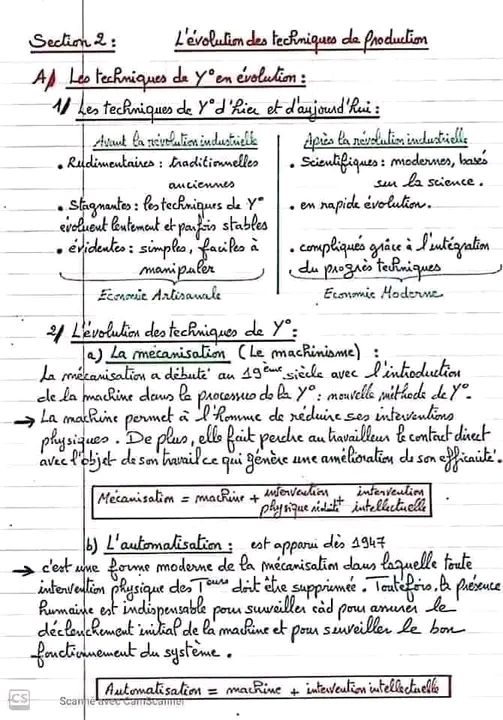 Section 2 : L'évolution des techniques de Production
A/ Les techniques de Y° en évolution :
1/ Les techniques de Y° d'hier et d'aujourd'hui :
Avant la révolution industrielle
• Rudimentaires : traditionnelles
anciennes
• Stagnantes : les techniques de Y°
évoluent lentement et parfois stables
• évidentes : simples, faciles à
manipuler
Economie Artisanale
Après la révolution industrielle
• Scientifiques : modernes, basés
sur la science.
• en rapide évolution.
• compliqués grâce à l'intégration
du progrès techniques
Economie Moderne
2/ L'évolution des techniques de Y° :
a) La mécanisation (Le machinisme) :
La mécanisation a débuté au 19ème siècle avec l'introduction
de la machine dans le processus de la Y° : nouvelle méthode de Y°.
→ La machine permet à l'homme de réduire ses interventions
physiques. De plus, elle fait perdre au travailleur le contact direct
avec l'objet de son travail ce qui génère une amélioration de son efficacité.
Mécanisation = machine + intervention physique réduite + intervention intellectuelle
b) L'automatisation : est apparu dès 1947
→ c'est une forme moderne de la mécanisation dans laquelle toute
intervention physique des Teurs doit être supprimée. Toutefois, la présence
humaine est indispensable pour surveiller càd pour assurer le
déclenchement initial de la machine et pour surveiller le bon
fonctionnement du système.
Automatisation = machine + intervention intellectuelle
CS Scanné avec CamScanner